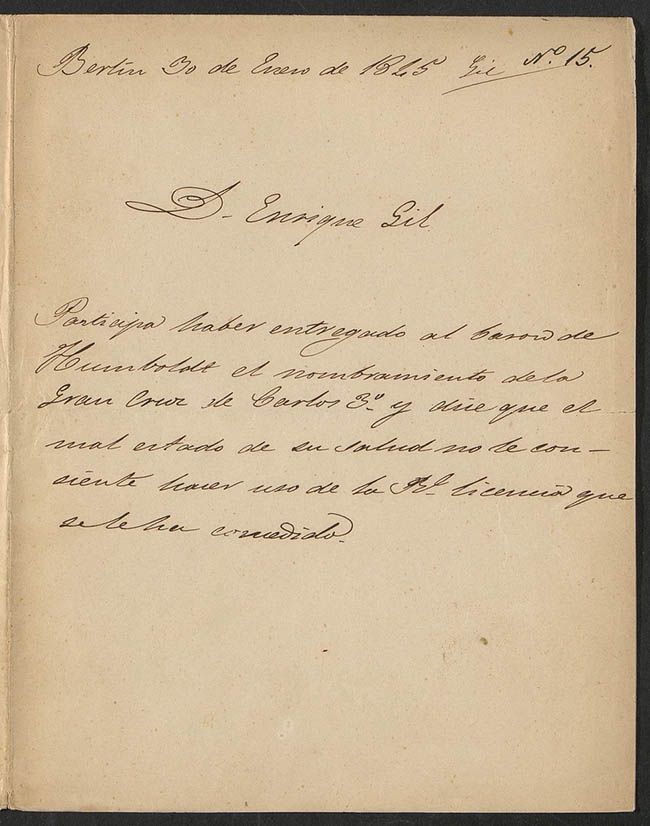 Berlin 30 de Enero de 1845 Gil Nº 15.
D. Enrique Gil
Participa haber entregado al baron de
Humboldt el nombramiento de la
Gran Cruz de Carlos 3º y dice que el
mal estado de su salud no le con-
siente hacer uso de la Rl. licencia que
se le ha concedido.